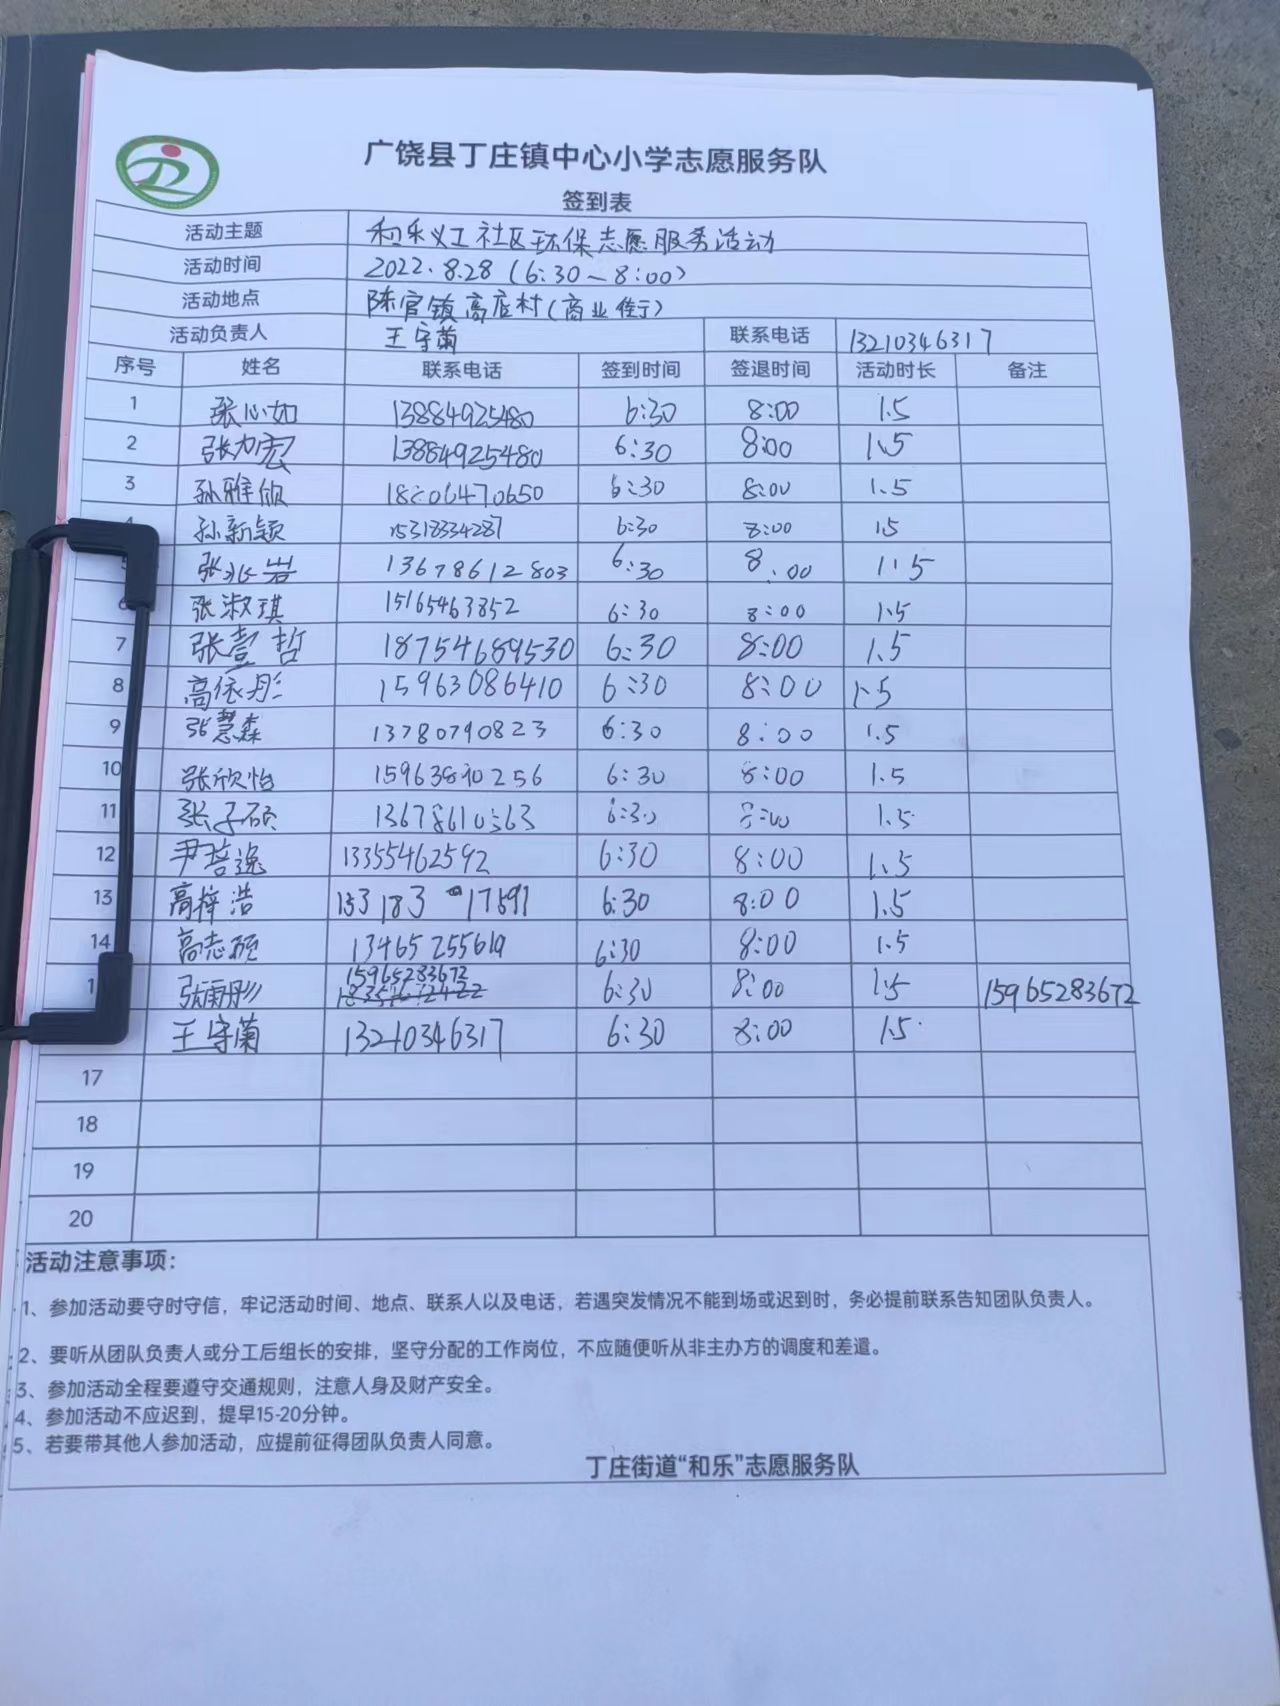 广饶县丁庄镇中心小学志愿服务队
签到表
活动主题 和乐义工社区环保志愿服务活动
活动时间 2022.8.28（6:30—8:00）
活动地点 陈官镇高店村（商业街）
活动负责人 王守菊 联系电话 13210346317
序号 姓名 联系电话 签到时间 签退时间 活动时长 备注
1 张心如 13884925480 6:30 8:00 1.5
2 张力宏 13884925480 6:30 8:00 1.5
3 孙雅欣 18206470650 6:30 8:00 1.5
孙新颖 15318334287 6:30 8:00 1.5
5 张兆岩 13678612803 6:30 8:00 1.5
6 张淑琪 15165463852 6:30 8:00 1.5
7 张壹哲 18754689530 6:30 8:00 1.5
8 高依彤 15963086410 6:30 8:00 1.5
9 张慧森 13780790823 6:30 8:00 1.5
10 张欣怡 15963890256 6:30 8:00 1.5
11 张子硕 13678610563 6:30 8:00 1.5
12 尹培逸 13355462592 6:30 8:00 1.5
13 高梓浩 153183 17591 6:30 8:00 1.5
14 高志硕 13465255619 6:30 8:00 1.5
1 张雨彤 15965283672 6:30 8:00 1.5 15965283672
王守菊 13210346317 6:30 8:00 1.5
17
18
19
20
活动注意事项：
1、参加活动要守时守信，牢记活动时间、地点、联系人以及电话，若遇突发情况不能到场或迟到时，务必提前联系告知团队负责人。
2、要听从团队负责人或分工后组长的安排，坚守分配的工作岗位，不应随便听从非主办方的调度和差遣。
3、参加活动全程要遵守交通规则，注意人身及财产安全。
4、参加活动不应迟到，提早15-20分钟。
5、若要带其他人参加活动，应提前征得团队负责人同意。
丁庄街道“和乐”志愿服务队